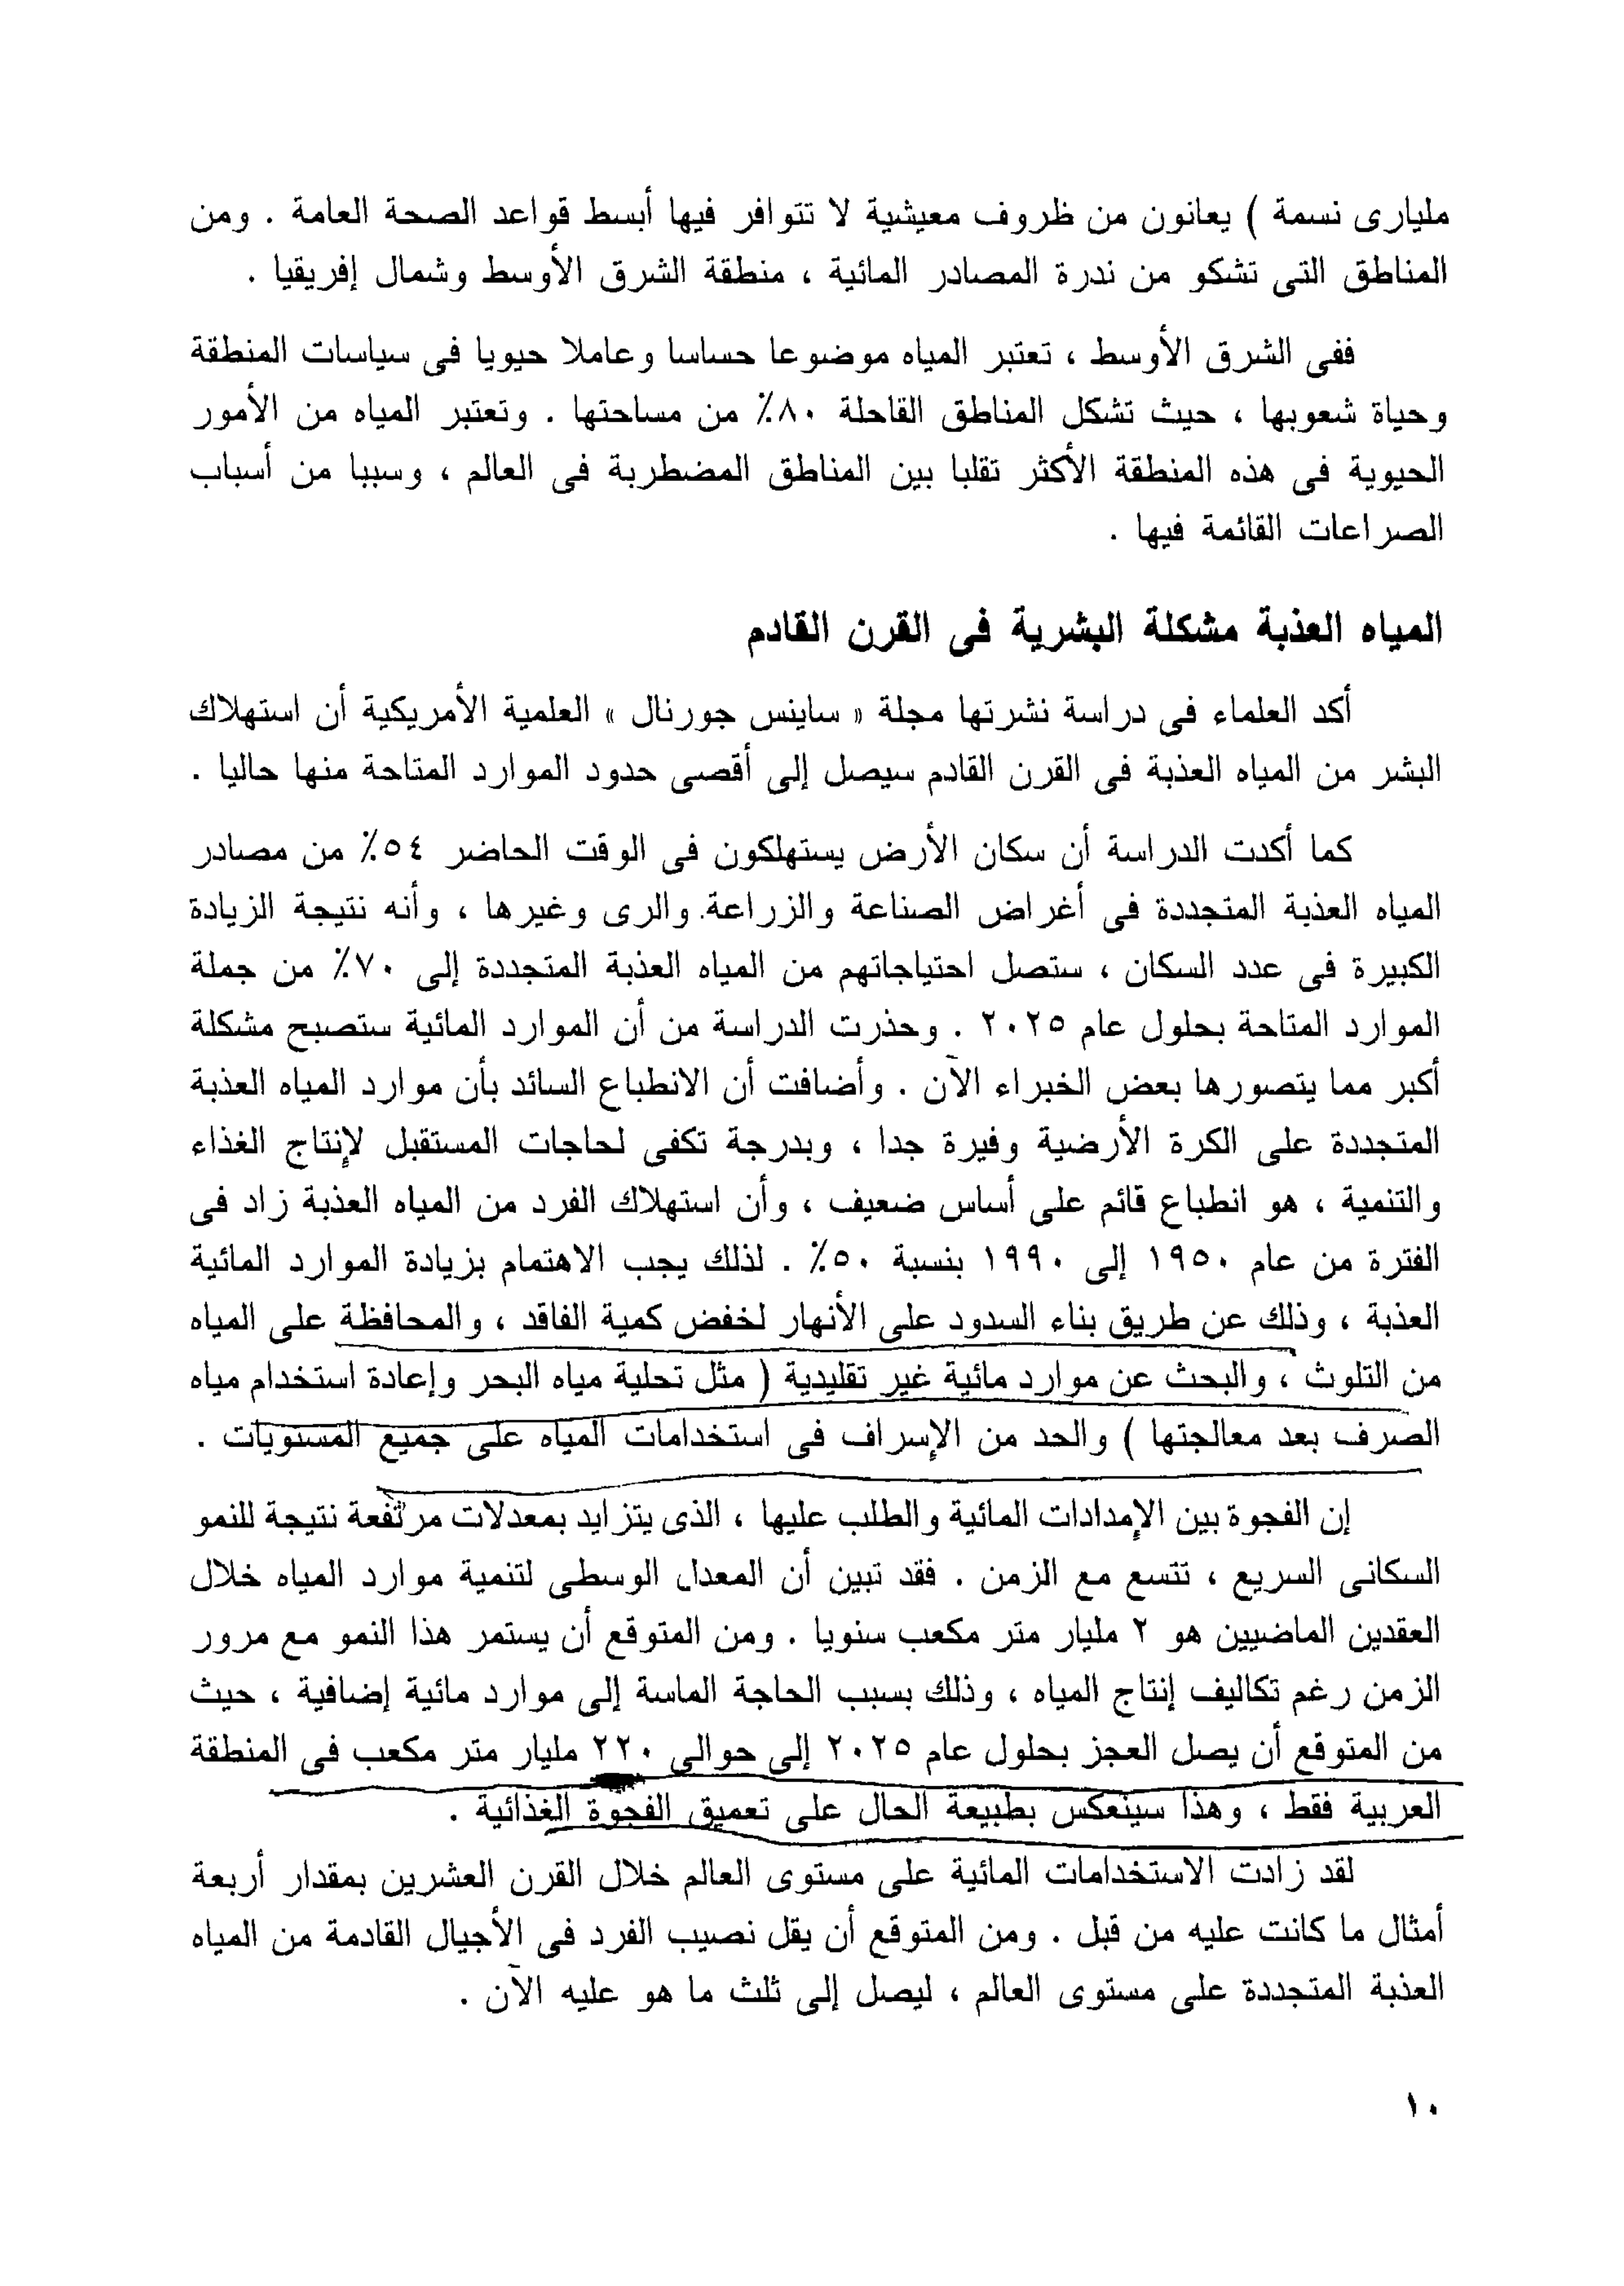 مليارى نسمة ) يعانون من ظروف معيشية لا تتوافر فيها أبسط قواعد الصحة العامة . ومن
المناطق التى تشكو من ندرة المصادر المائية ، منطقة الشرق الأوسط وشمال إفريقيا .
ففى الشرق الأوسط ، تعتبر المياه موضوعا حساسا وعاملا حيويا فى سياسات المنطقة
وحياة شعوبها ، حيث تشكل المناطق القاحلة ٨٠٪ من مساحتها . وتعتبر المياه من الأمور
الحيوية فى هذه المنطقة الأكثر تقلبا بين المناطق المضطربة فى العالم ، وسببا من أسباب
الصراعات القائمة فيها .
المياه العذبة مشكلة البشرية فى القرن القادم
أكد العلماء فى دراسة نشرتها مجلة « ساينس جورنال » العلمية الأمريكية أن استهلاك
البشر من المياه العذبة فى القرن القادم سيصل إلى أقصى حدود الموارد المتاحة منها حاليا .
كما أكدت الدراسة أن سكان الأرض يستهلكون فى الوقت الحاضر ٥٤٪ من مصادر
المياه العذبة المتجددة فى أغراض الصناعة والزراعة والرى وغيرها ، وأنه نتيجة الزيادة
الكبيرة فى عدد السكان ، ستصل احتياجاتهم من المياه العذبة المتجددة إلى ٧٠٪ من جملة
الموارد المتاحة بحلول عام ٢٠٢٥ . وحذرت الدراسة من أن الموارد المائية ستصبح مشكلة
أكبر مما يتصورها بعض الخبراء الآن . وأضافت أن الانطباع السائد بأن موارد المياه العذبة
المتجددة على الكرة الأرضية وفيرة جدا ، وبدرجة تكفى لحاجات المستقبل لإنتاج الغذاء
والتنمية ، هو انطباع قائم على أساس ضعيف ، وأن استهلاك الفرد من المياه العذبة زاد فى
الفترة من عام ١٩٥٠ إلى ١٩٩٠ بنسبة ٥٠٪ . لذلك يجب الاهتمام بزيادة الموارد المائية
العذبة ، وذلك عن طريق بناء السدود على الأنهار لخفض كمية الفاقد ، والمحافظة على المياه
من التلوث ، والبحث عن موارد مائية غير تقليدية ( مثل تحلية مياه البحر وإعادة استخدام مياه
الصرف بعد معالجتها ) والحد من الإسراف فى استخدامات المياه على جميع المستويات .
إن الفجوة بين الإمدادات المائية والطلب عليها ، الذى يتزايد بمعدلات مرتفعة نتيجة للنمو
السكانى السريع ، تتسع مع الزمن . فقد تبين أن المعدل الوسطى لتنمية موارد المياه خلال
العقدين الماضيين هو ٢ مليار متر مكعب سنويا . ومن المتوقع أن يستمر هذا النمو مع مرور
الزمن رغم تكاليف إنتاج المياه ، وذلك بسبب الحاجة الماسة إلى موارد مائية إضافية ، حيث
من المتوقع أن يصل العجز بحلول عام ٢٠٢٥ إلى حوالى ٢٢٠ مليار متر مكعب فى المنطقة
العربية فقط ، وهذا سينعكس بطبيعة الحال على تعميق الفجوة الغذائية .
لقد زادت الاستخدامات المائية على مستوى العالم خلال القرن العشرين بمقدار أربعة
أمثال ما كانت عليه من قبل . ومن المتوقع أن يقل نصيب الفرد فى الأجيال القادمة من المياه
العذبة المتجددة على مستوى العالم ، ليصل إلى ثلث ما هو عليه الآن .
١٠